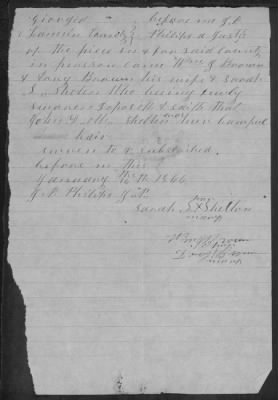 Georgia before me J.P.
Philips a Justis
of the piece in & for said County
in person came Wm J Brown
& Lucy Brown his wife & Sarah
S. Shelton Who being duly
sworn deposeth & saith that
John D. M. Shelton
hair
sworn to & subscribed
before me this
January the 16th 1866
J. P. Philips J.P.
Sarah S X Shelton
mark
Wm J Brown
Brown
mark